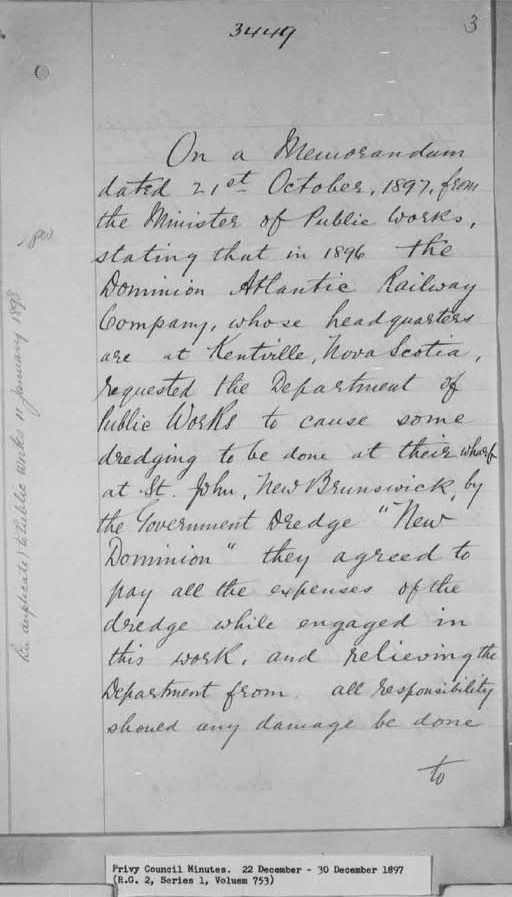 3449
3
On a Memorandum
dated 21st October, 1897, from
the Minister of Public Works,
stating that in 1896 the
Dominion Atlantic Railway
Company, whose headquarters
are at Kentville, Nova Scotia,
requested the Department of
Public Works to cause some
dredging to be done at their wharf
at St. John, New Brunswick, by
the Government Dredge "New
Dominion" they agreed to
pay all the expenses of the
dredge while engaged in
this work, and relieving the
Department from all responsibility
should any damage be done
to
(in duplicate) to Public Works 11 January 1898
Privy Council Minutes. 22 December - 30 December 1897
(R.G. 2, Series 1, Voluem 753)